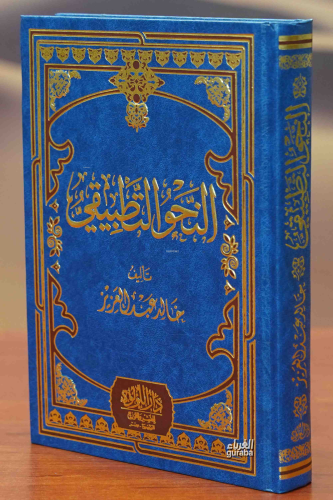 النَّحْوُ التَّطْبِيقِيُّ
تأليف
خالد عبد العزيز
النَّحْوُ التَّطْبِيقِيُّ
خالد عبد العزيز
الغرباء
guraba